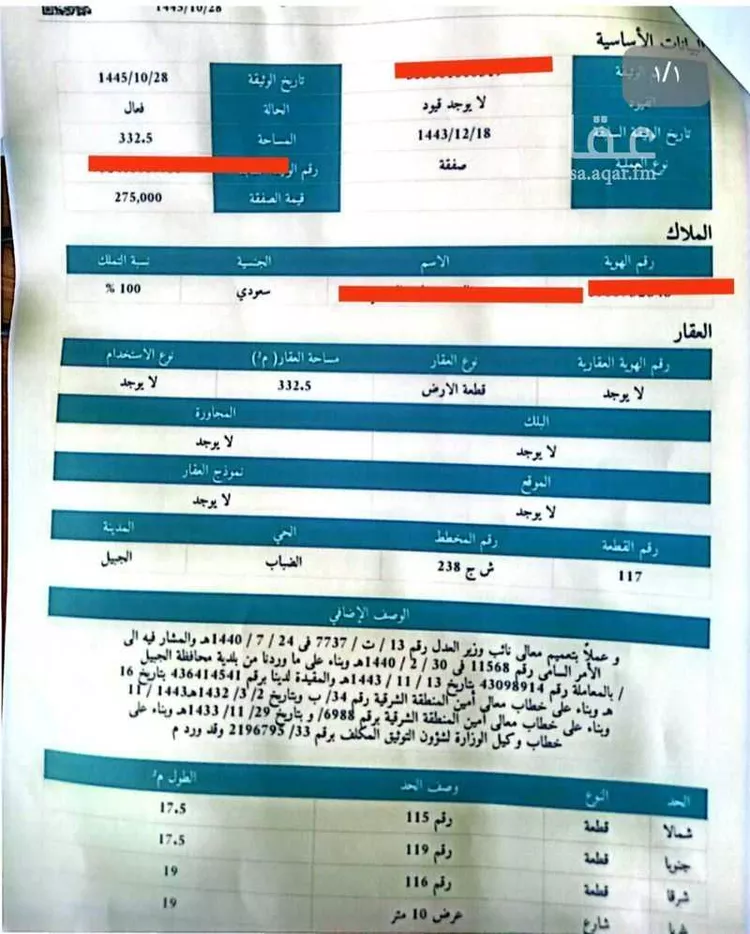 1445/10/28
البيانات الأساسية
١/١
تاريخ الوثيقة 1445/10/28
القيود لا يوجد قيود الحالة فعال
تاريخ الوثيقة السابقة 1443/12/18 المساحة 332.5
نوع العملية صفقة رقم
قيمة الصفقة 275,000
عقار
sa.aqar.fm
الملاك
رقم الهوية الاسم الجنسية نسبة التملك
سعودي 100 %
العقار
رقم الهوية العقارية نوع العقار مساحة العقار( م²) نوع الاستخدام
لا يوجد قطعة الارض 332.5 لا يوجد
البلك المجاورة
لا يوجد لا يوجد
الموقع نموذج العقار
لا يوجد لا يوجد
رقم القطعة رقم المخطط الحي المدينة
117 ش ج 238 الضباب الجبيل
الوصف الإضافي
و عملاً بتعميم معالي نائب وزير العدل رقم 13 / ت / 7737 فى 24 / 7 / 1440هـ والمشار فيه الى
الأمر السامى رقم 11568 فى 30 / 2 / 1440هـ وبناء على ما وردنا من بلدية محافظة الجبيل
/ بالمعاملة رقم 43098914 بتاريخ 13 / 11 / 1443هـ والمقيدة لدينا برقم 436414541 بتاريخ 16
هـ وبناء على خطاب معالى أمين المنطقة الشرقية رقم 34/ ب وبتاريخ 2/ 3/ 1432هـ1443 / 11
وبناء على خطاب معالى أمين المنطقة الشرقية برقم 6988/ و بتاريخ 29/ 11/ 1433هـ وبناء على
خطاب وكيل الوزارة لشؤون التوثيق المكلف برقم 33/ 2196795 وقد ورد م
الحد النوع وصف الحد الطول م²
شمالا قطعة رقم 115 17.5
جنوبا قطعة رقم 119 17.5
شرقا قطعة رقم 116 19
غربا شارع عرض 10 متر 19